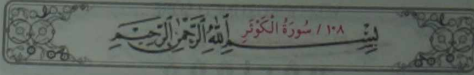 ١٠٨ / سُورَةُ الْكَوْثَر
بِسْمِ اللَّهِ الرَّحْمَٰنِ الرَّحِيمِ